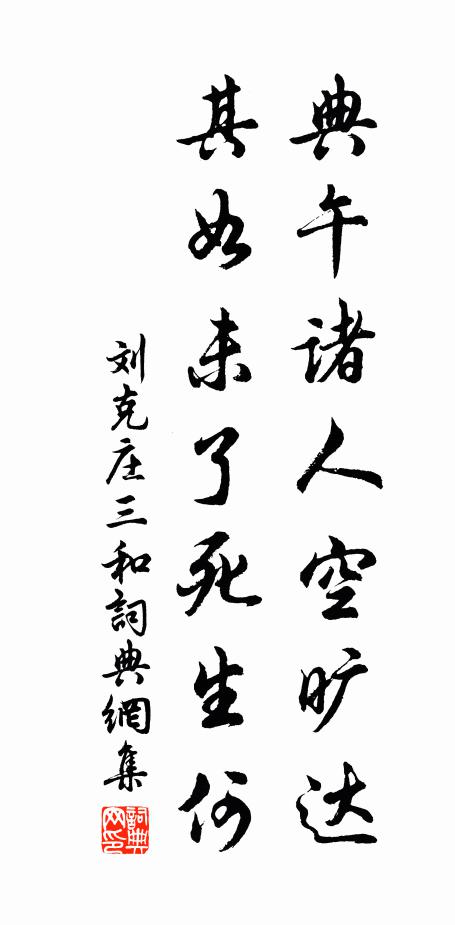 典午諸人空旷达
其如未了死生何
刘克庄三和詞典網集
詞典
网印